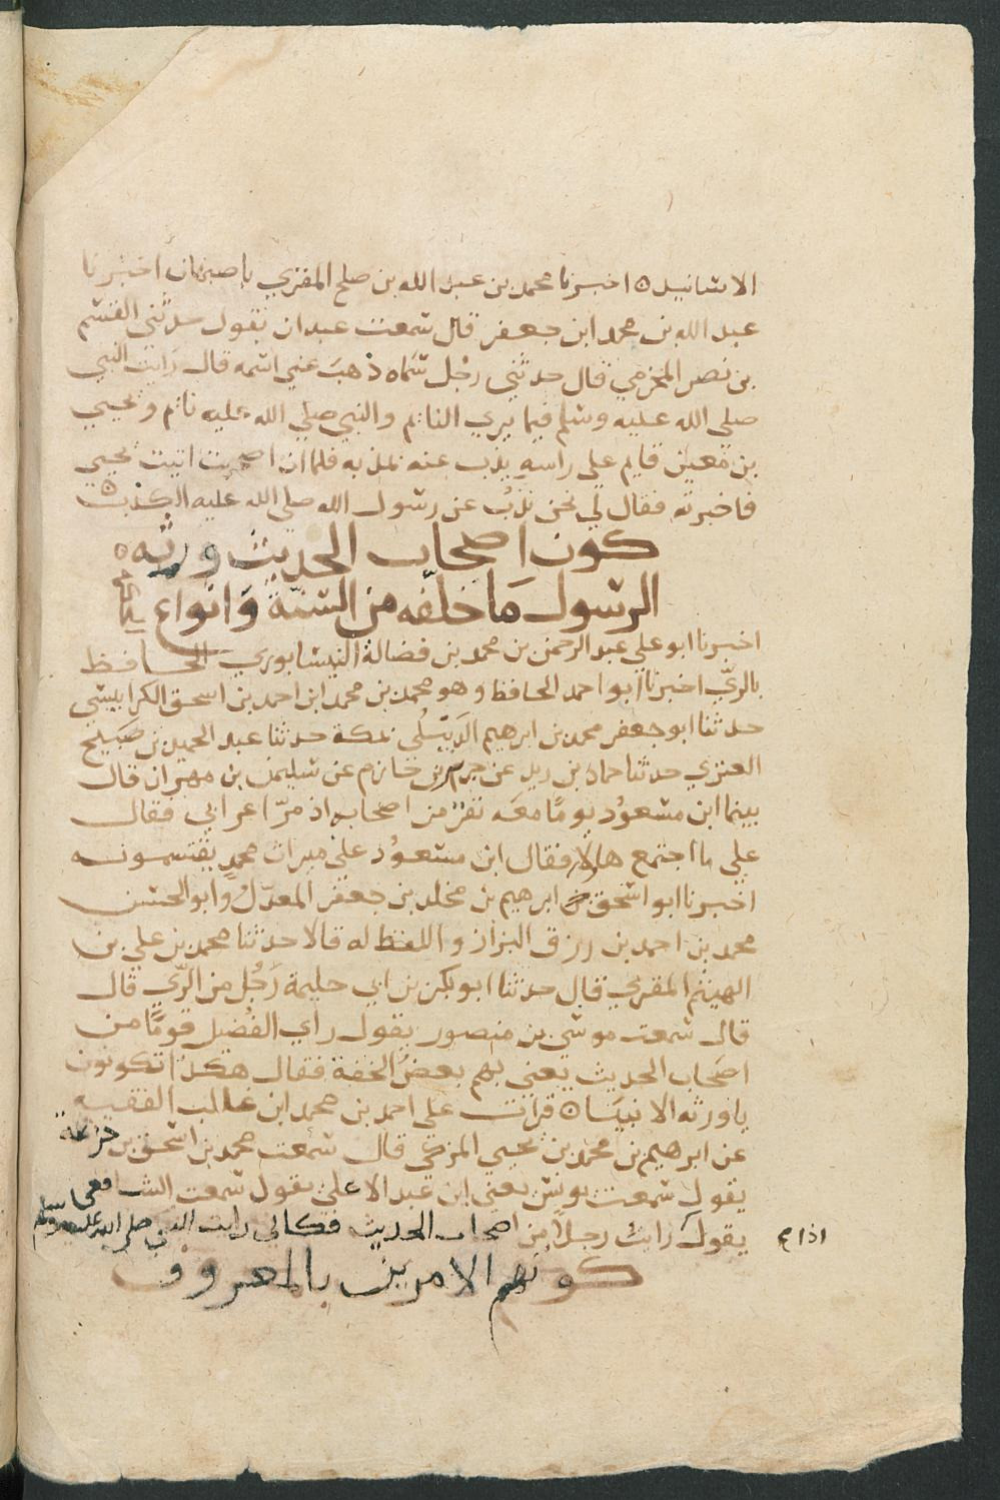 الاسانيد ٥ اخبرنا محمد بن عبد الله بن صلح المقري باصبهان اخبرنا
عبد الله بن محمد ابن جعفر قال سمعت عبدان يقول حدثني القسم
بن نصر المخرمي قال حدثني رجل سماه ذهب عني اسمه قال رايت النبي
صلى الله عليه وسلم فيما يري النائم والنبي صلي الله عليه نائم ويحيي
بن معين قايم على راسه يذب عنه بمذبه فلما ان اصبحت اتيت يحيي
فاخبرته فقال لي نحن نذب عن رسول الله صلي الله عليه الكذب ٥
كون اصحاب الحديث ورثه ٥
الرسول ما خلفه من السنة وانواع
اخبرنا ابو علي عبد الرحمن بن محمد بن فضالة النيسابوري الحافظ
بالري اخبرنا ابو احمد الحافظ وهو محمد بن محمد ابن احمد بن اسحق الكرابيسي
حدثنا ابو جعفر محمد بن ابرهيم الديبلي بمكة حدثنا عبد الحميد بن صبيح
العنزي حدثنا حماد بن زيد عن جرير بن حازم عن سليمن بن مهران قال
بينما ابن مسعود يوما معه نفر من اصحابه اذ مر اعرابي فقال
علي ما اجتمع هالا فقال ابن مسعود علي ميراث محمد يقتسمونه
اخبرنا ابو اسحق ابرهيم بن مخلد بن جعفر المعدل وابو الحسن
محمد بن احمد بن رزق البزاز واللفظ له قالا حدثنا محمد بن علي بن
الهيثم المقري قال حدثنا ابو بكر بن ابي حليمة رجل من الري قال
قال سمعت موسي بن منصور يقول راي الفضيل قوما من
اصحاب الحديث يعني بهم بعض الخفة فقال هكذا تكونون
يا ورثه الانبيا ٥ قرات على احمد بن محمد ابن غالب الفقيه
عن ابرهيم بن محمد بن يحيي المزكي قال سمعت محمد بن اسحق بن خزيمة
يقول سمعت يونس يعني ابن عبد الاعلى يقول سمعت الشافعي
يقول رايت رجلا من اصحاب الحديث فكاني رايت النبي صلى الله عليه وسلم
اذا
كونهم الامرين بالمعروف